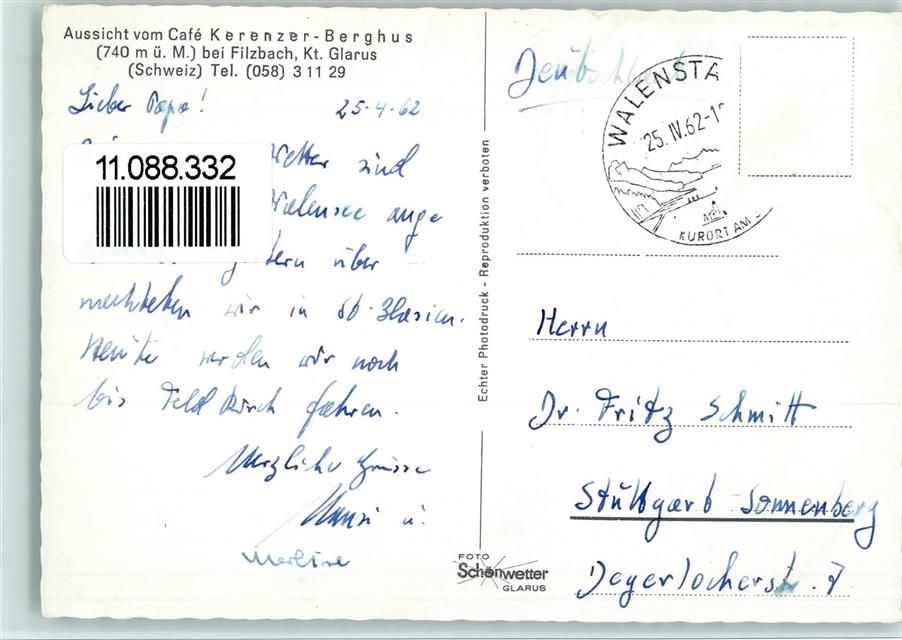 Aussicht vom Café Kerenzer-Berghus
(740 m ü. M.) bei Filzbach, Kt. Glarus
(Schweiz) Tel. (058) 3 11 29
Lieber Papa!
25-4-62
Wetter sind
ange
über
wir in St. Blasien.
Heute werden wir noch
bis Feldkirch fahren.
Herzliche Grüsse
Hansi u.
11.088.332
Echter Photodruck - Reproduktion verboten
FOTO
Schönwetter
GLARUS
Deutschland
WALENSTA
25.IV.62-1
KURORT AM
Herrn
Dr. Fritz Schmitt
Stuttgart Sonnenberg
Degerlocherst. 7